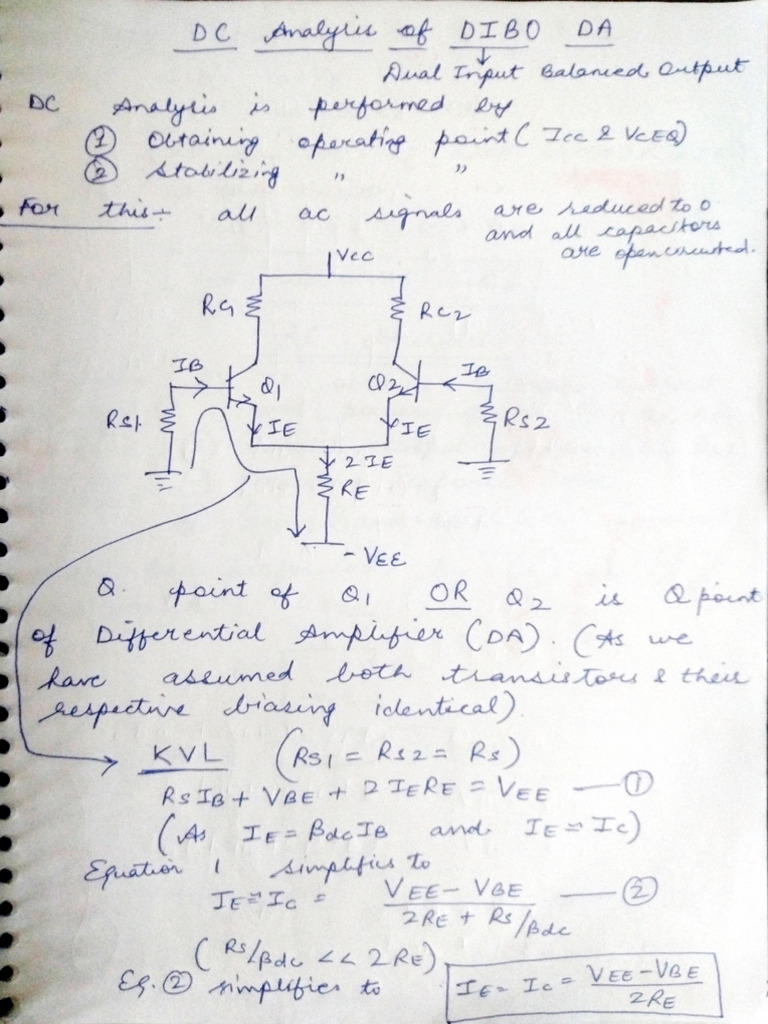 DC Analysis of DIBO DA
Dual Input Balanced Output
DC Analysis is performed by
① Obtaining operating point ( Icc & VCEQ)
② Stabilizing " "
For this:- all ac signals are reduced to 0
and all capacitors
are opencircuited.
Vcc
RC1 RC2
IB Q1 Q2 IB
RS1 IE IE RS2
2IE
RE
- VEE
Q. point of Q1 OR Q2 is Q point
of Differential Amplifier (DA). (As we
have assumed both transistors & their
respective biasing identical).
KVL (RS1 = RS2 = RS)
RSIB + VBE + 2IERE = VEE — ①
(As IE = βdcIB and IE ≃ IC)
Equation 1 simplifies to
IE ≃ IC = VEE - VBE / 2RE + RS/βdc — ②
( RS/βdc << 2RE)
Eq. ② simplifies to IE = IC = VEE - VBE / 2RE